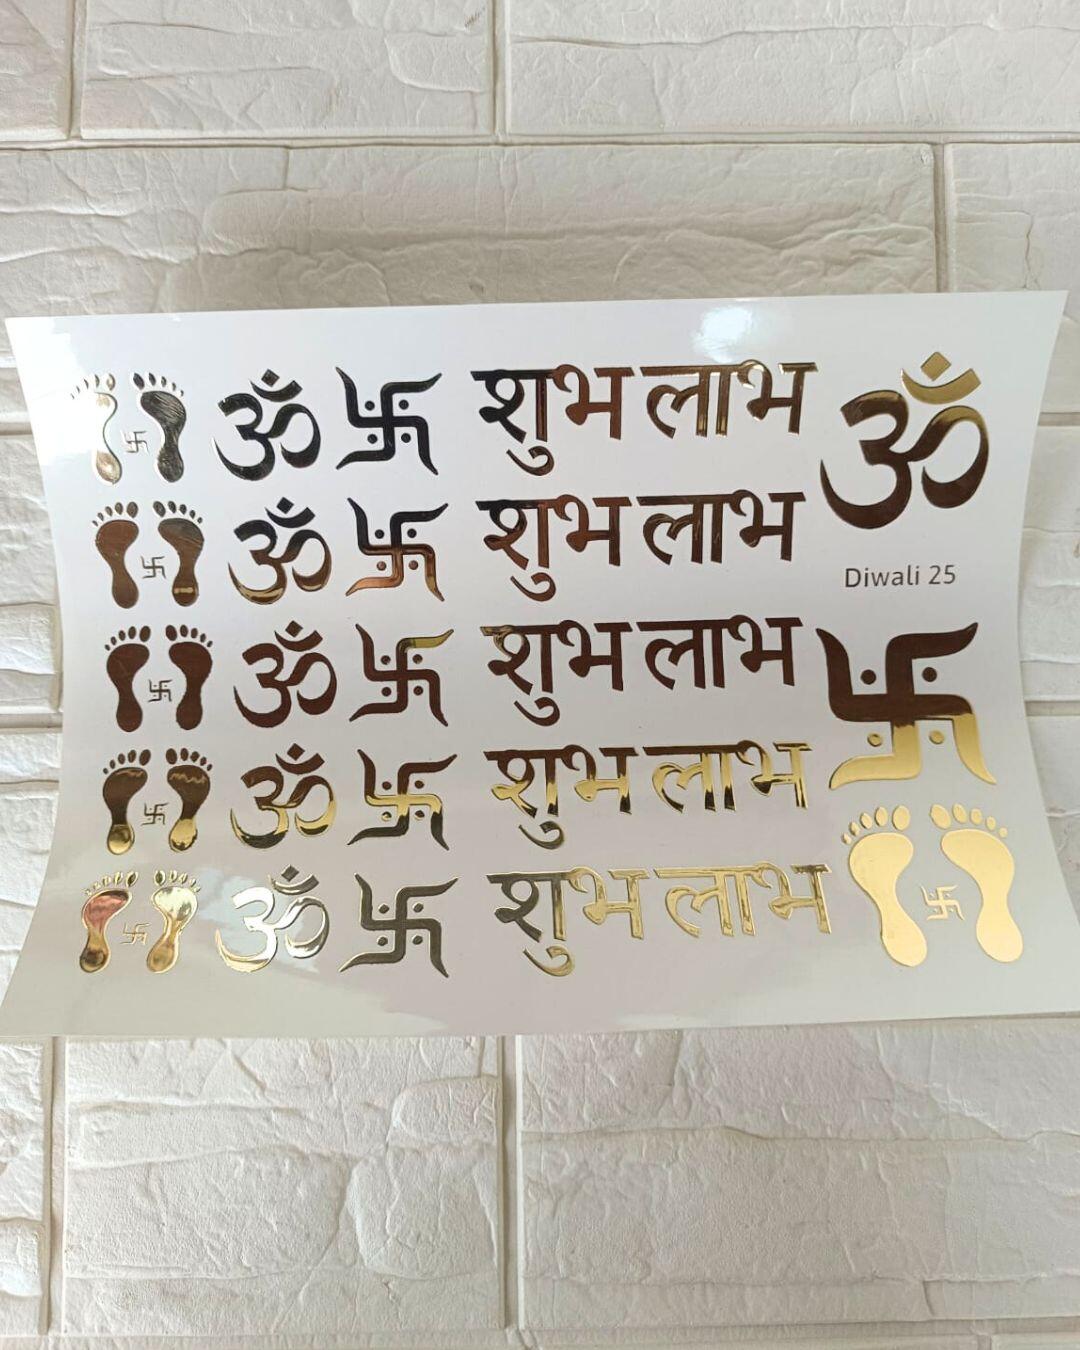 ॐ 卐 शुभ लाभ ॐ
ॐ 卐 शुभ लाभ
Diwali 25
ॐ 卐 शुभ लाभ 卐
ॐ 卐 शुभ लाभ
ॐ 卐 शुभ लाभ